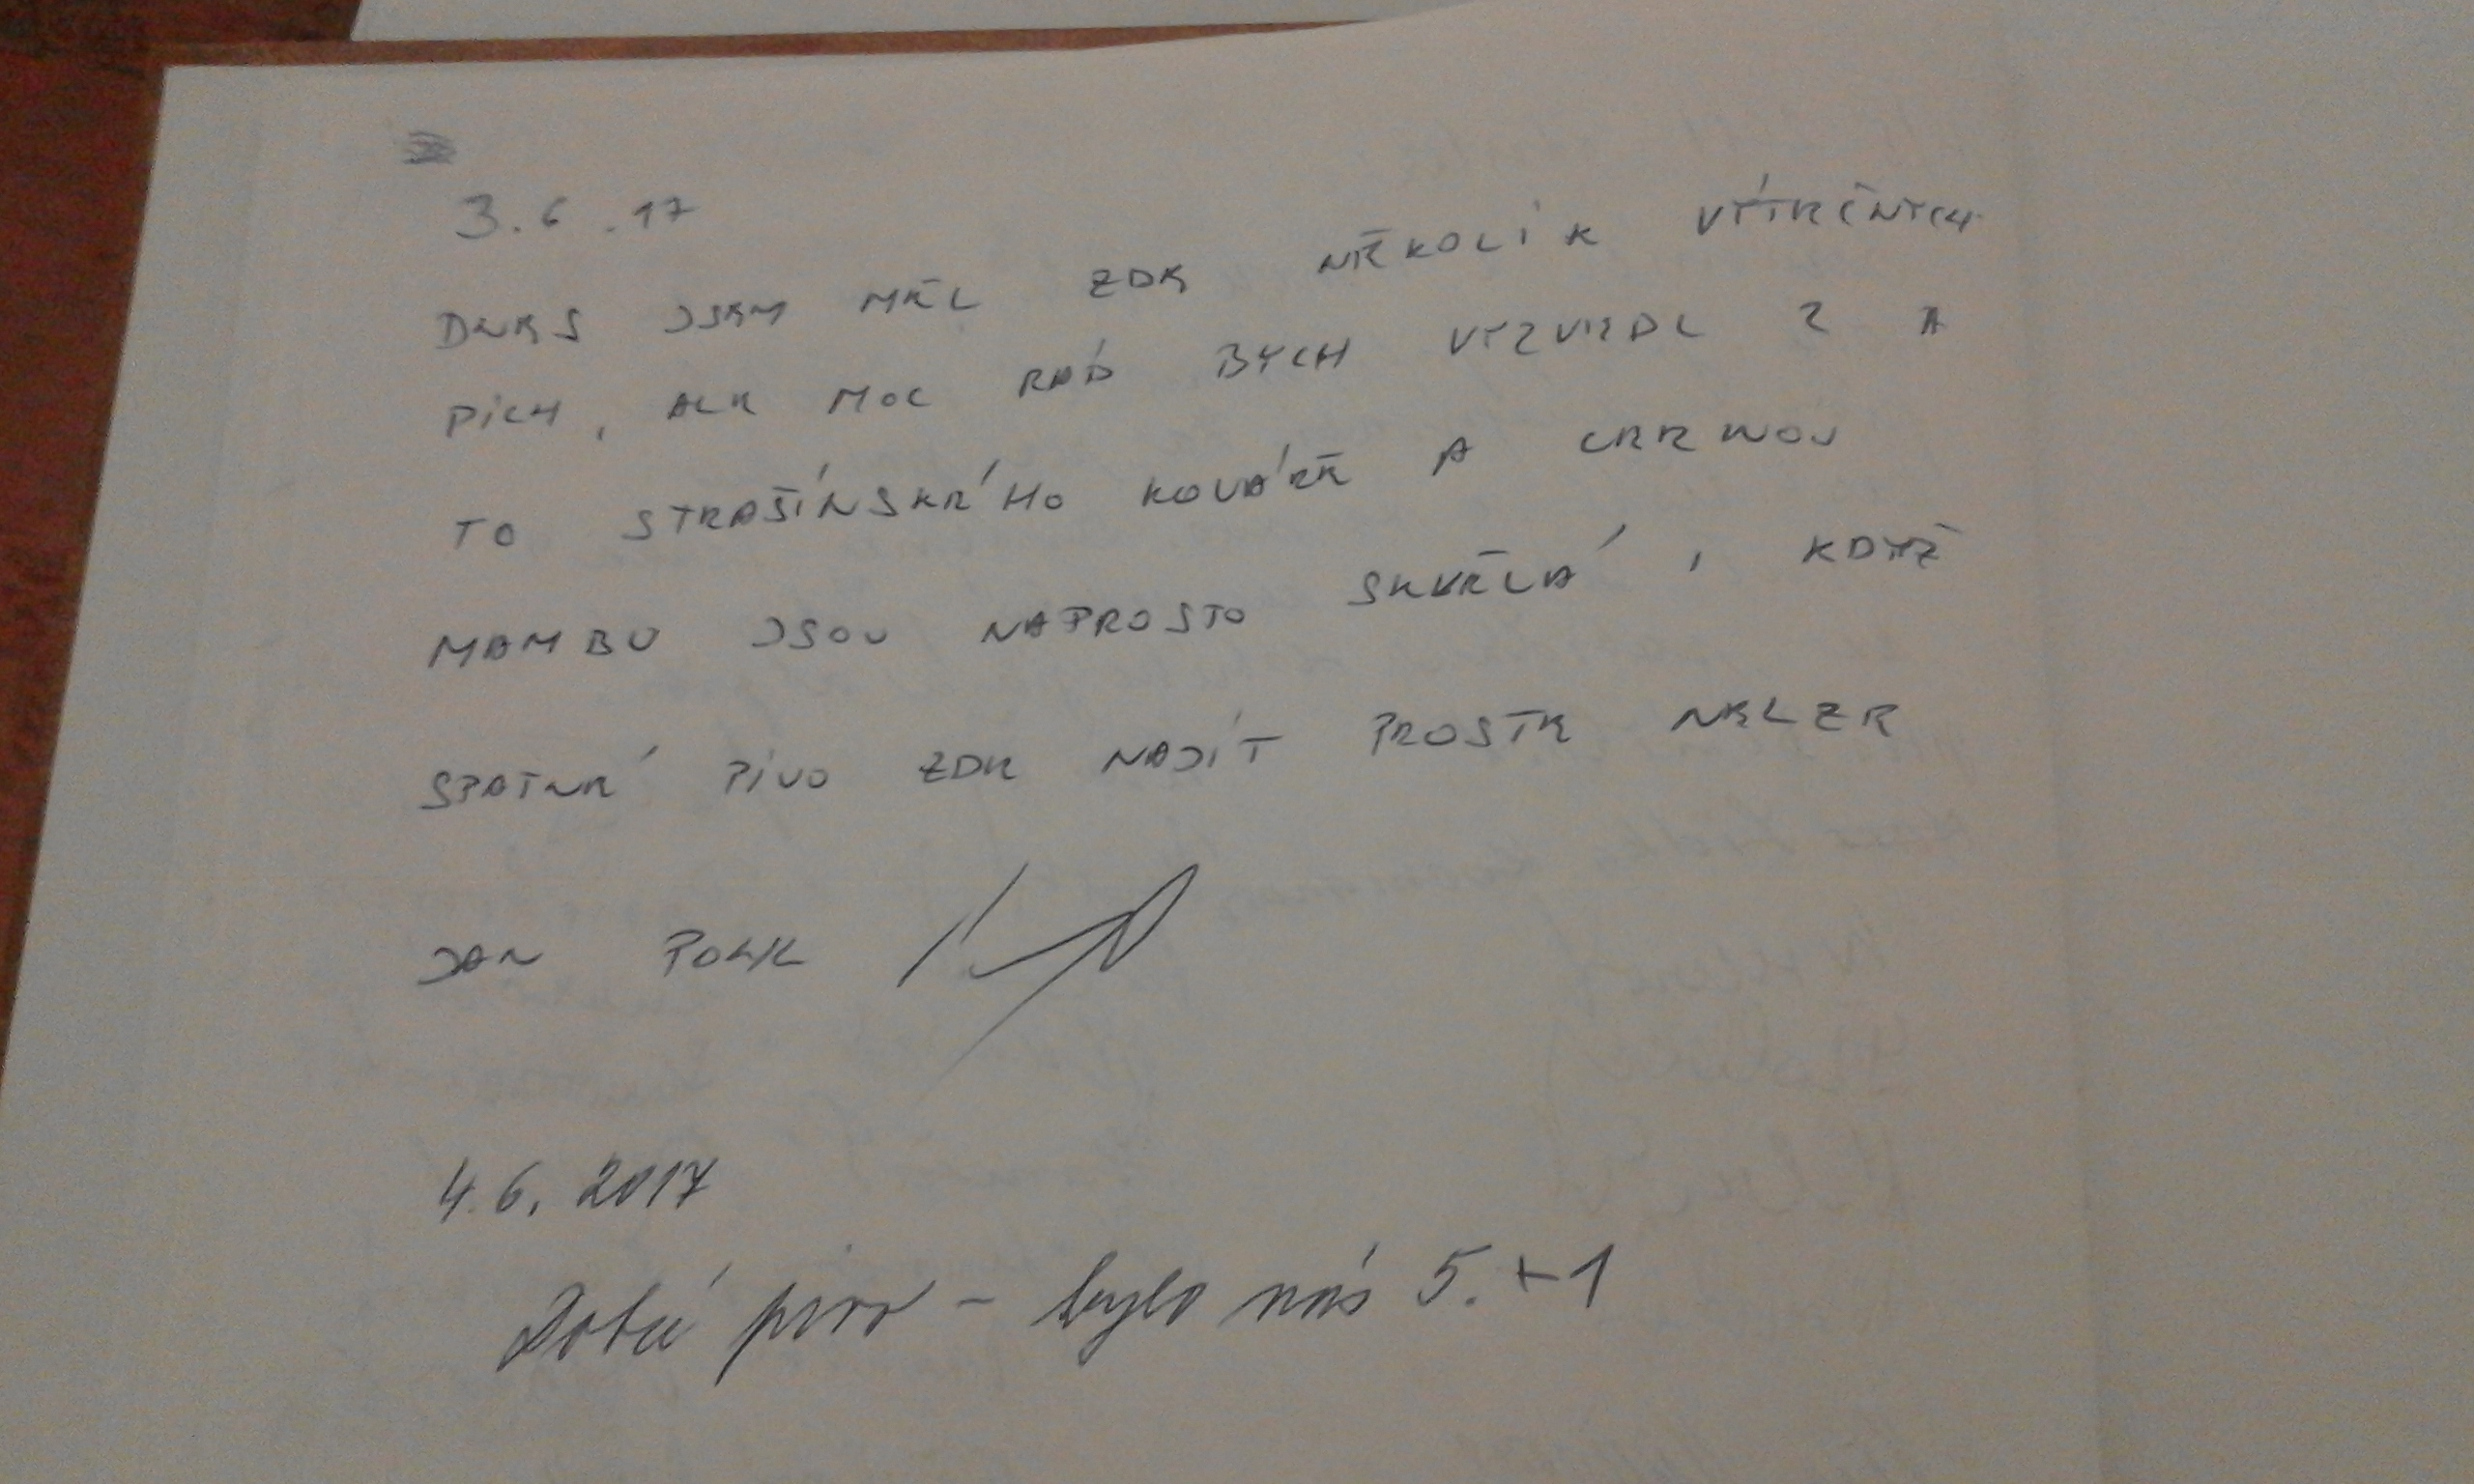 3.6.17
DNES JSEM MĚL ZDE NĚKOLIK VÝTEČNÝCH
PÍCH, ALE MOC RÁD BYCH VYZVEDL 2 A
TO STRAŠÍNSKÉHO KOVÁŘE A CRR WOU
MAMBU JSOU NAPROSTO SKVĚLÁ, KDYŽ
SPATNÉ PIVO ZDE NAJÍT PROSTE NELZE
JAN
4.6.2017
Dobré pivo - bylo nás 5.+1